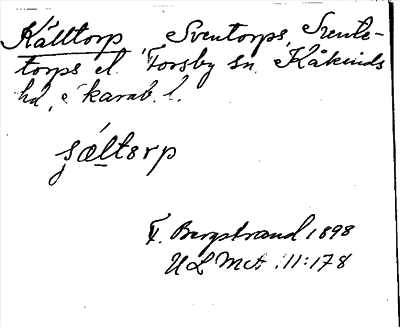 Källtorp Sventorps, Svente-
torps el. Forsby sn, Kåkinds
hd, Skarab. l.
sæltorp
F. Bergstrand 1898
ULMA 11:178